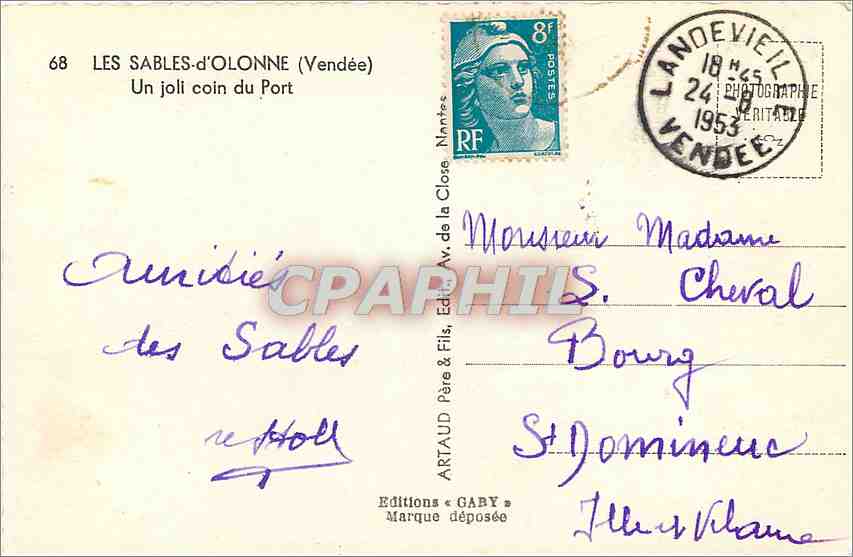 68 LES SABLES-d'OLONNE (Vendée)
Un joli coin du Port
8F
POSTES
RF
LANDEVIEILLE
18H45
24-8
1953
VENDEE
PHOTOGRAPHIE
VERITABLE
ARTAUD Père & Fils, Edit., Av. de la Close Nantes
Amitiés
des Sables
Monsieur Madame
S. Cheval
Bourg
St Domineuc
Ille et Vilaine
CPAPHIL
Editions « GABY »
Marque déposée